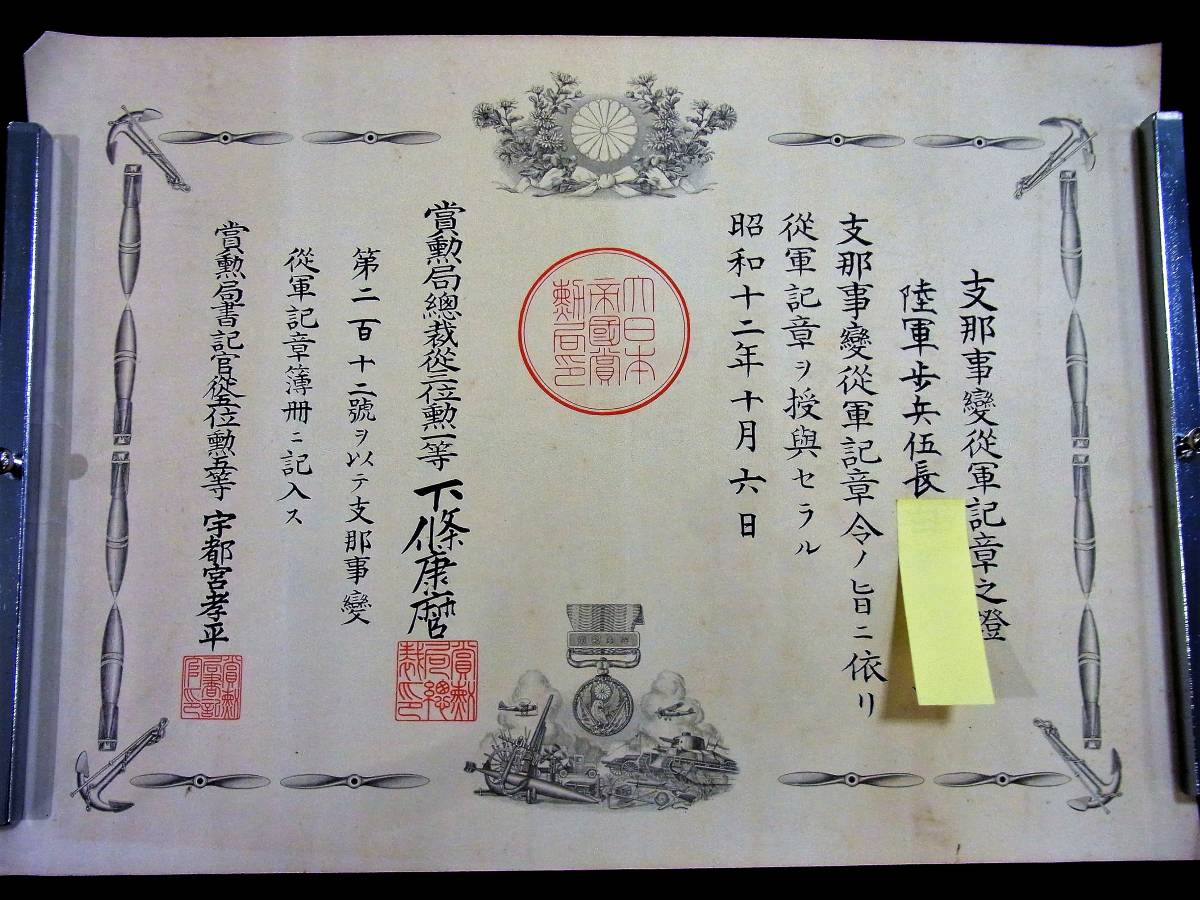 支那事變從軍記章之證
陸軍步兵伍長
支那事變從軍記章令ノ旨ニ依リ
從軍記章ヲ授與セラル
昭和十二年十月六日
大日本
帝國賞
勲局印
賞勲局總裁從三位勲一等 下條康麿
賞勲
局總
裁印
第二百十二號ヲ以テ支那事變
從軍記章簿冊ニ記入ス
賞勲局書記官從五位勲五等 宇都宮孝平
賞勲
局書記
官印